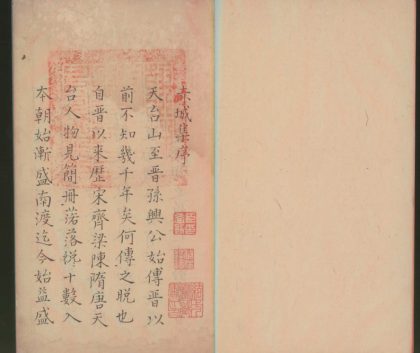 赤城集序
天台山至晉孫興公始傳晉以
前不知幾千年矣何傳之晚也
自晉以來歷宋齊梁陳隋唐天
台人物見簡冊落落僅十數入
本朝始漸盛南渡迄今始益盛